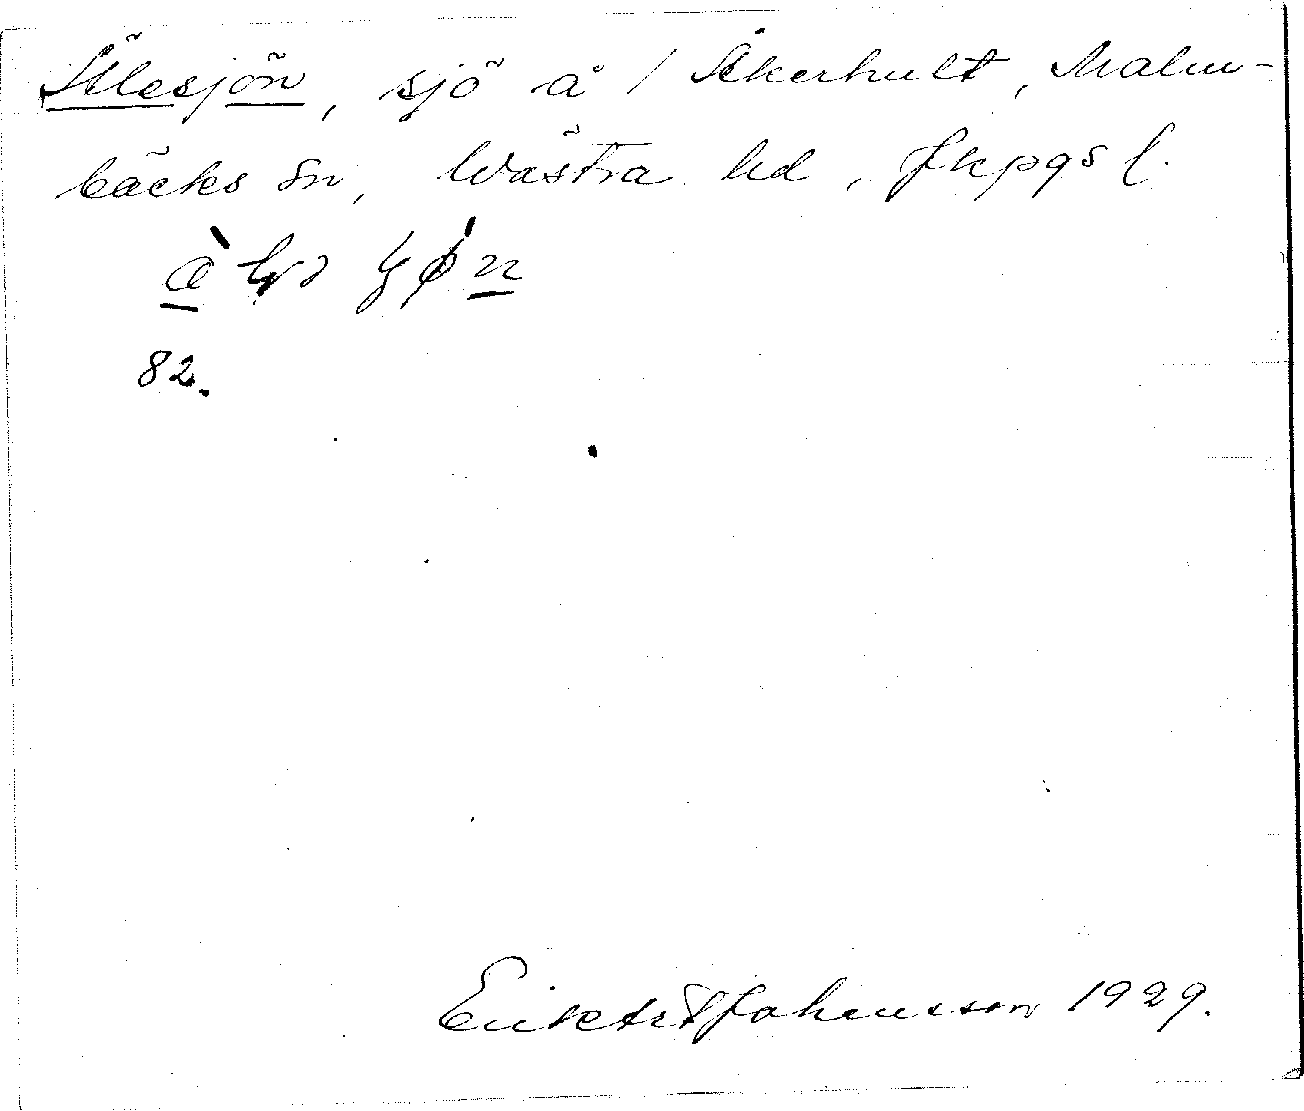 Älesjön, sjö å / Åkerhult, Malm-
bäcks sn, Västra hd, Jkpgs l.
82.
Johansson 1929.